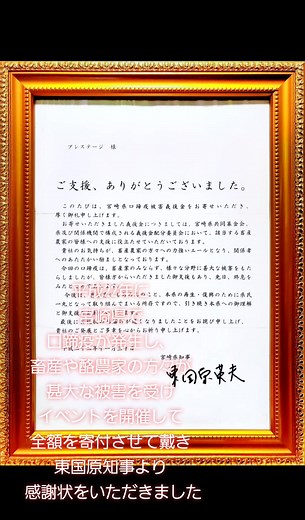 プレステージ 様
ご支援、ありがとうございました。
このたびは、宮崎県口蹄疫被害義援金をお寄せいただき、
厚く御礼申し上げます。
お寄せいただきました義援金につきましては、宮崎県共同募金会、
県及び関係機関で構成される義援金配分委員会において、該当する畜産
農家の皆様への支援に役立させていただいております。
貴社のお気持ちが、畜産農家の方々の力強いエールとなり、関係者
へのあたたかい励ましとなっております。
今回の口蹄疫は、畜産業のみならず、様々な分野に甚大な被害をもた
らしましたが、皆様方からいただきました御支援もあり、先日、終息を
今後は、
一丸となって取り組んでまいる所存ですので、引き続き本県への御理解
御支援
最後に
貴社のご発展とご多幸を心からお祈り申し上げます。
宮崎県知事
東国原英夫
口蹄疫が発生し、
畜産や酪農家の方々が
甚大な被害を受け
イベントを開催して
全額を寄付させて戴き
東国原知事より
感謝状をいただきました